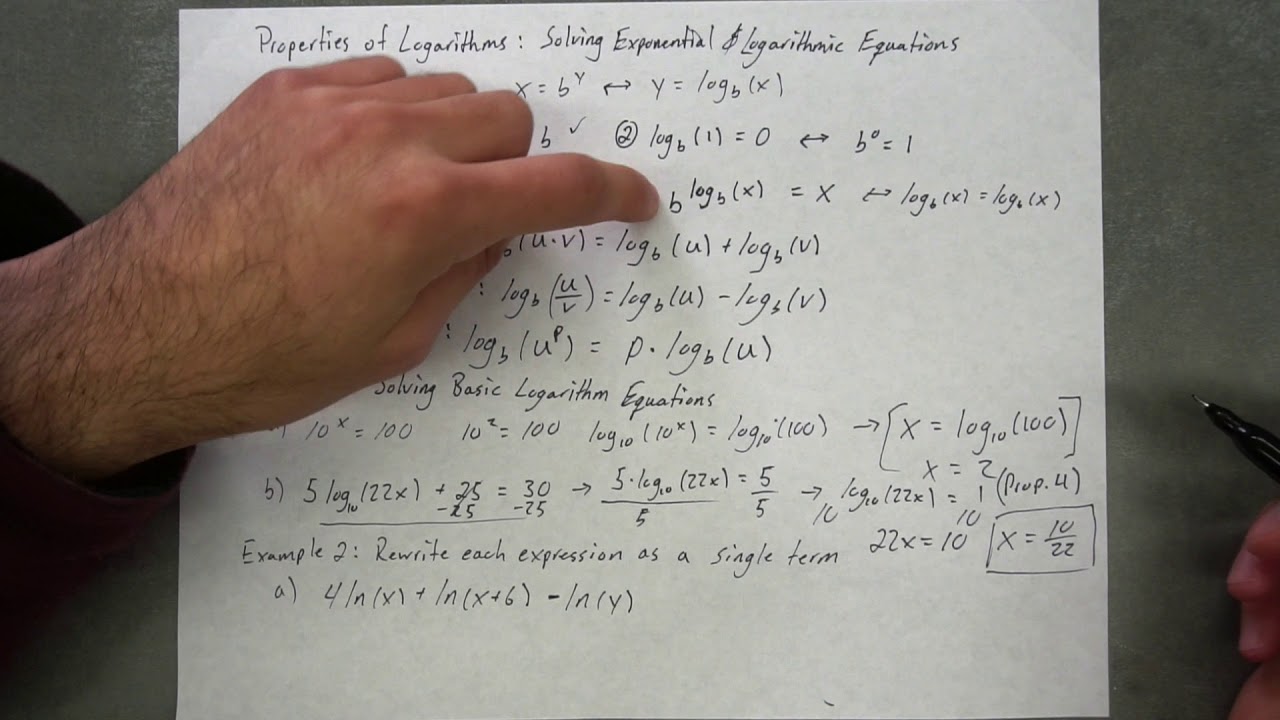 Properties of Logarithms: Solving Exponential & Logarithmic Equations
x = b^y ↔ y = log_b(x)
b ✓ ② log_b(1) = 0 ↔ b^0 = 1
b^log_b(x) = x ↔ log_b(x) = log_b(x)
(u·v) = log_b(u) + log_b(v)
: log_b(u/v) = log_b(u) - log_b(v)
: log_b(u^p) = p·log_b(u)
Solving Basic Logarithm Equations
10^x = 100 10^2 = 100 log_10(10^x) = log_10(100) → [x = log_10(100)]
x = 2
b) 5 log_10(22x) + 25 = 30 → 5·log_10(22x) = 5 → log_10(22x) = 1 (Prop. 4)
-25 -25 5 5 10 10
22x = 10 x = 10/22
Example 2: Rewrite each expression as a single term
a) 4 ln(x) + ln(x+6) - ln(y)